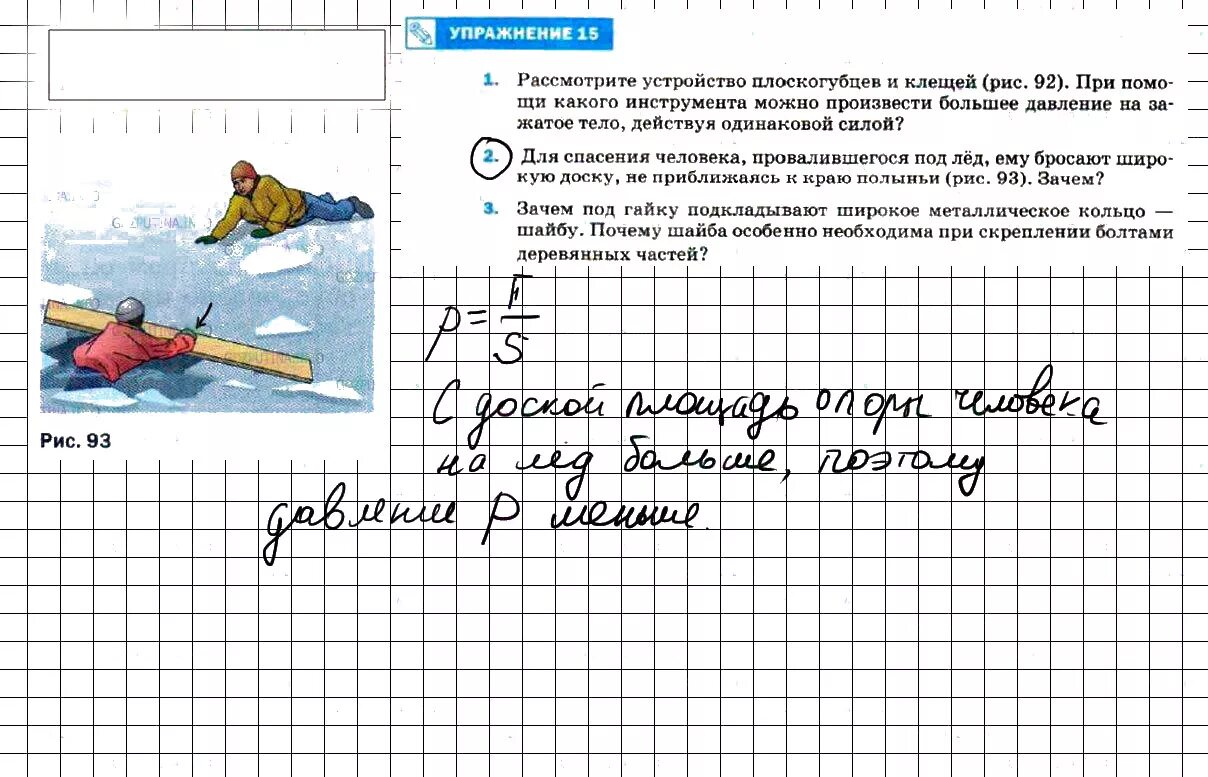 УПРАЖНЕНИЕ 15
1. Рассмотрите устройство плоскогубцев и клещей (рис. 92). При помо-
щи какого инструмента можно произвести большее давление на за-
жатое тело, действуя одинаковой силой?
2. Для спасения человека, провалившегося под лёд, ему бросают широ-
кую доску, не приближаясь к краю полыньи (рис. 93). Зачем?
3. Зачем под гайку подкладывают широкое металлическое кольцо —
шайбу. Почему шайба особенно необходима при скреплении болтами
деревянных частей?
Рис. 93
p = F/S
С доской площадь опоры человека
на лёд больше, поэтому
давление p меньше.